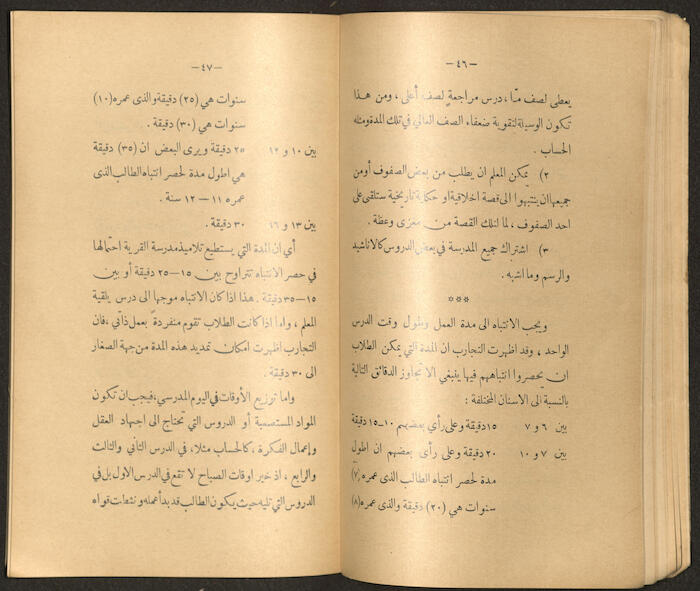 — ٤٦ —
يعطى لصف مّا، درس مراجعة لصف أعلى، ومن هذا
تكون الوسيلة لتقوية ضعفاء الصف العالي في تلك المدة مثلة
الحساب.
٢) يمكن المعلم ان يطلب من بعض الصفوف أو من
جميعها ان ينتبهوا الى قصة اخلاقية او حكاية تاريخية ستلقى على
احد الصفوف، لما لتلك القصة من مغزى وعظة.
٣) اشتراك جميع المدرسة في بعض الدروس كالاناشيد
والرسم وما اشبه.
***
ويجب الانتباه الى مدة العمل وطول وقت الدرس
الواحد، وقد اظهرت التجارب ان المدة التي يمكن الطلاب
ان يحصروا انتباههم فيها ينبغي الا تتجاوز الدقائق التالية
بالنسبة الى الاسنان المختلفة:
بين ٦ و ٧ ١٥ دقيقة وعلى رأي بعضهم ١٠–١٥ دقيقة
بين ٧ و ١٠ ٢٠ دقيقة وعلى رأي بعضهم ان اطول
مدة لحصر انتباه الطالب الذى عمره (٧)
سنوات هي (٢٠) دقيقة والذى عمره (٨)
— ٤٧ —
سنوات هي (٢٥) دقيقة والذى عمره (١٠)
سنوات هي (٣٠) دقيقة.
بين ١٠ و ١٢ ٢٥ دقيقة ويرى البعض ان (٣٥) دقيقة
هي اطول مدة لحصر انتباه الطالب الذى
عمره ١١ – ١٢ سنة.
بين ١٣ و ١٦ ٣٠ دقيقة.
أي ان المدة التي يستطيع تلاميذ مدرسة القرية احتمالها
في حصر الانتباه تتراوح بين ١٥–٢٥ دقيقة أو بين
١٥–٣٥ دقيقة. هذا اذا كان الانتباه موجها الى درس يلقيه
المعلم، واما اذا كانت الطلاب تقوم منفردة بعمل ذاتي، فان
التجارب اظهرت امكان تمديد هذه المدة من جهة الصغار
الى ٣٠ دقيقة.
واما توزيع الأوقات في اليوم المدرسي، فيجب ان تكون
المواد المستصعبة أو الدروس التي تحتاج الى اجهاد العقل
وإعمال الفكرة، كالحساب مثلا، في الدرس الثاني والثالث
والرابع، اذ خير اوقات الصباح لا تقع في الدرس الاول بل في
الدروس التي تليه حيث يكون الطالب قد بدأ عمله ونشطت قواه